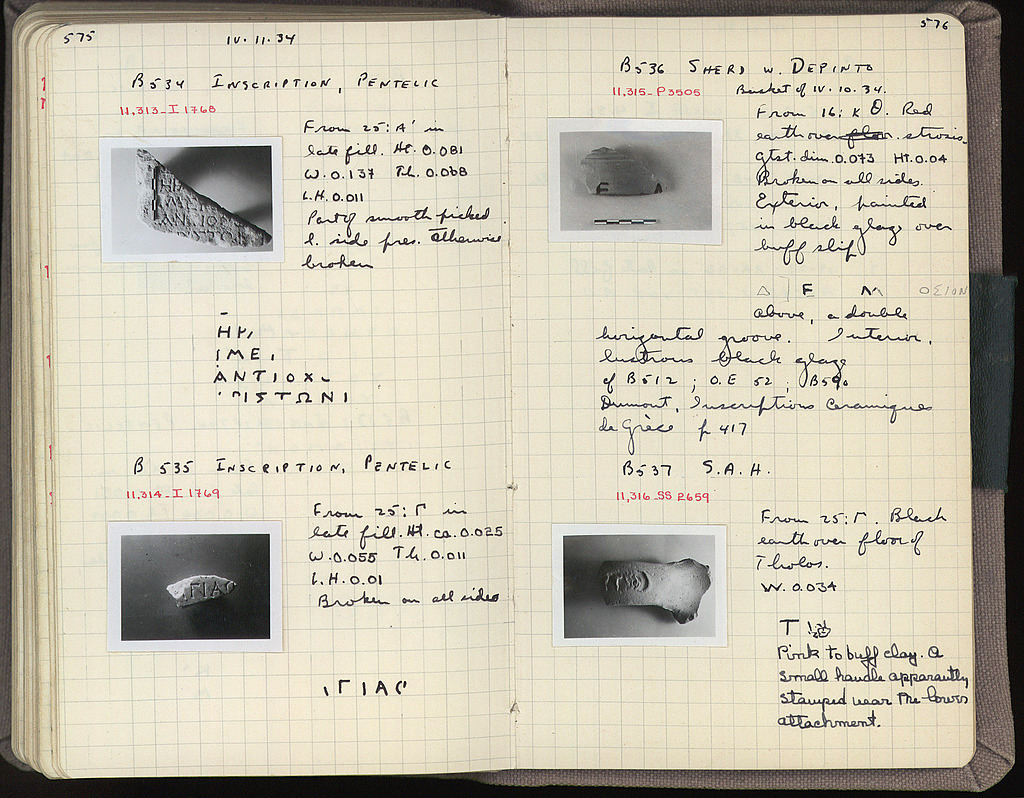 575
IV. 11. 34
B 534 INSCRIPTION, PENTELIC
11,313-I 1768
From 25: Α' in
late fill. Ht. 0.081
W. 0.137 Th. 0.068
L.H. 0.011
Part of smooth picked
l. side pres. Otherwise
broken
ΗΡ
ΙΜΕ
ΑΝΤΙΟΧ
ΙΣΤΩΝΙ
B 535 INSCRIPTION, PENTELIC
11,314-I 1769
From 25: Γ in
late fill. Ht. ca. 0.025
W. 0.055 Th. 0.011
L.H. 0.01
Broken on all sides
ΓΙΑ
576
B 536 SHERD W. DEPINTO
11,315-P3505
Basket of IV. 10. 34.
From 16: Κ Θ. Red
earth over floor strosis
gtst. dim 0.073 HT. 0.04
Broken on all sides.
Exterior, painted
in black glaze over
buff slip
Δ | Ε Μ ΟΣΙΟΝ
above, a double
horizontal groove. Interior,
lustrous black glaze
cf B 512 ; O.E 52 ; B590
Dumont, Inscriptions Ceramiques
de Grèce p 417
B 537 S.A.H.
11,316-SS 2659
From 25: Γ. Black
earth over floor of
Tholos.
W. 0.034
Pink to buff clay. A
small handle apparantly
stamped near the lower
attachment.